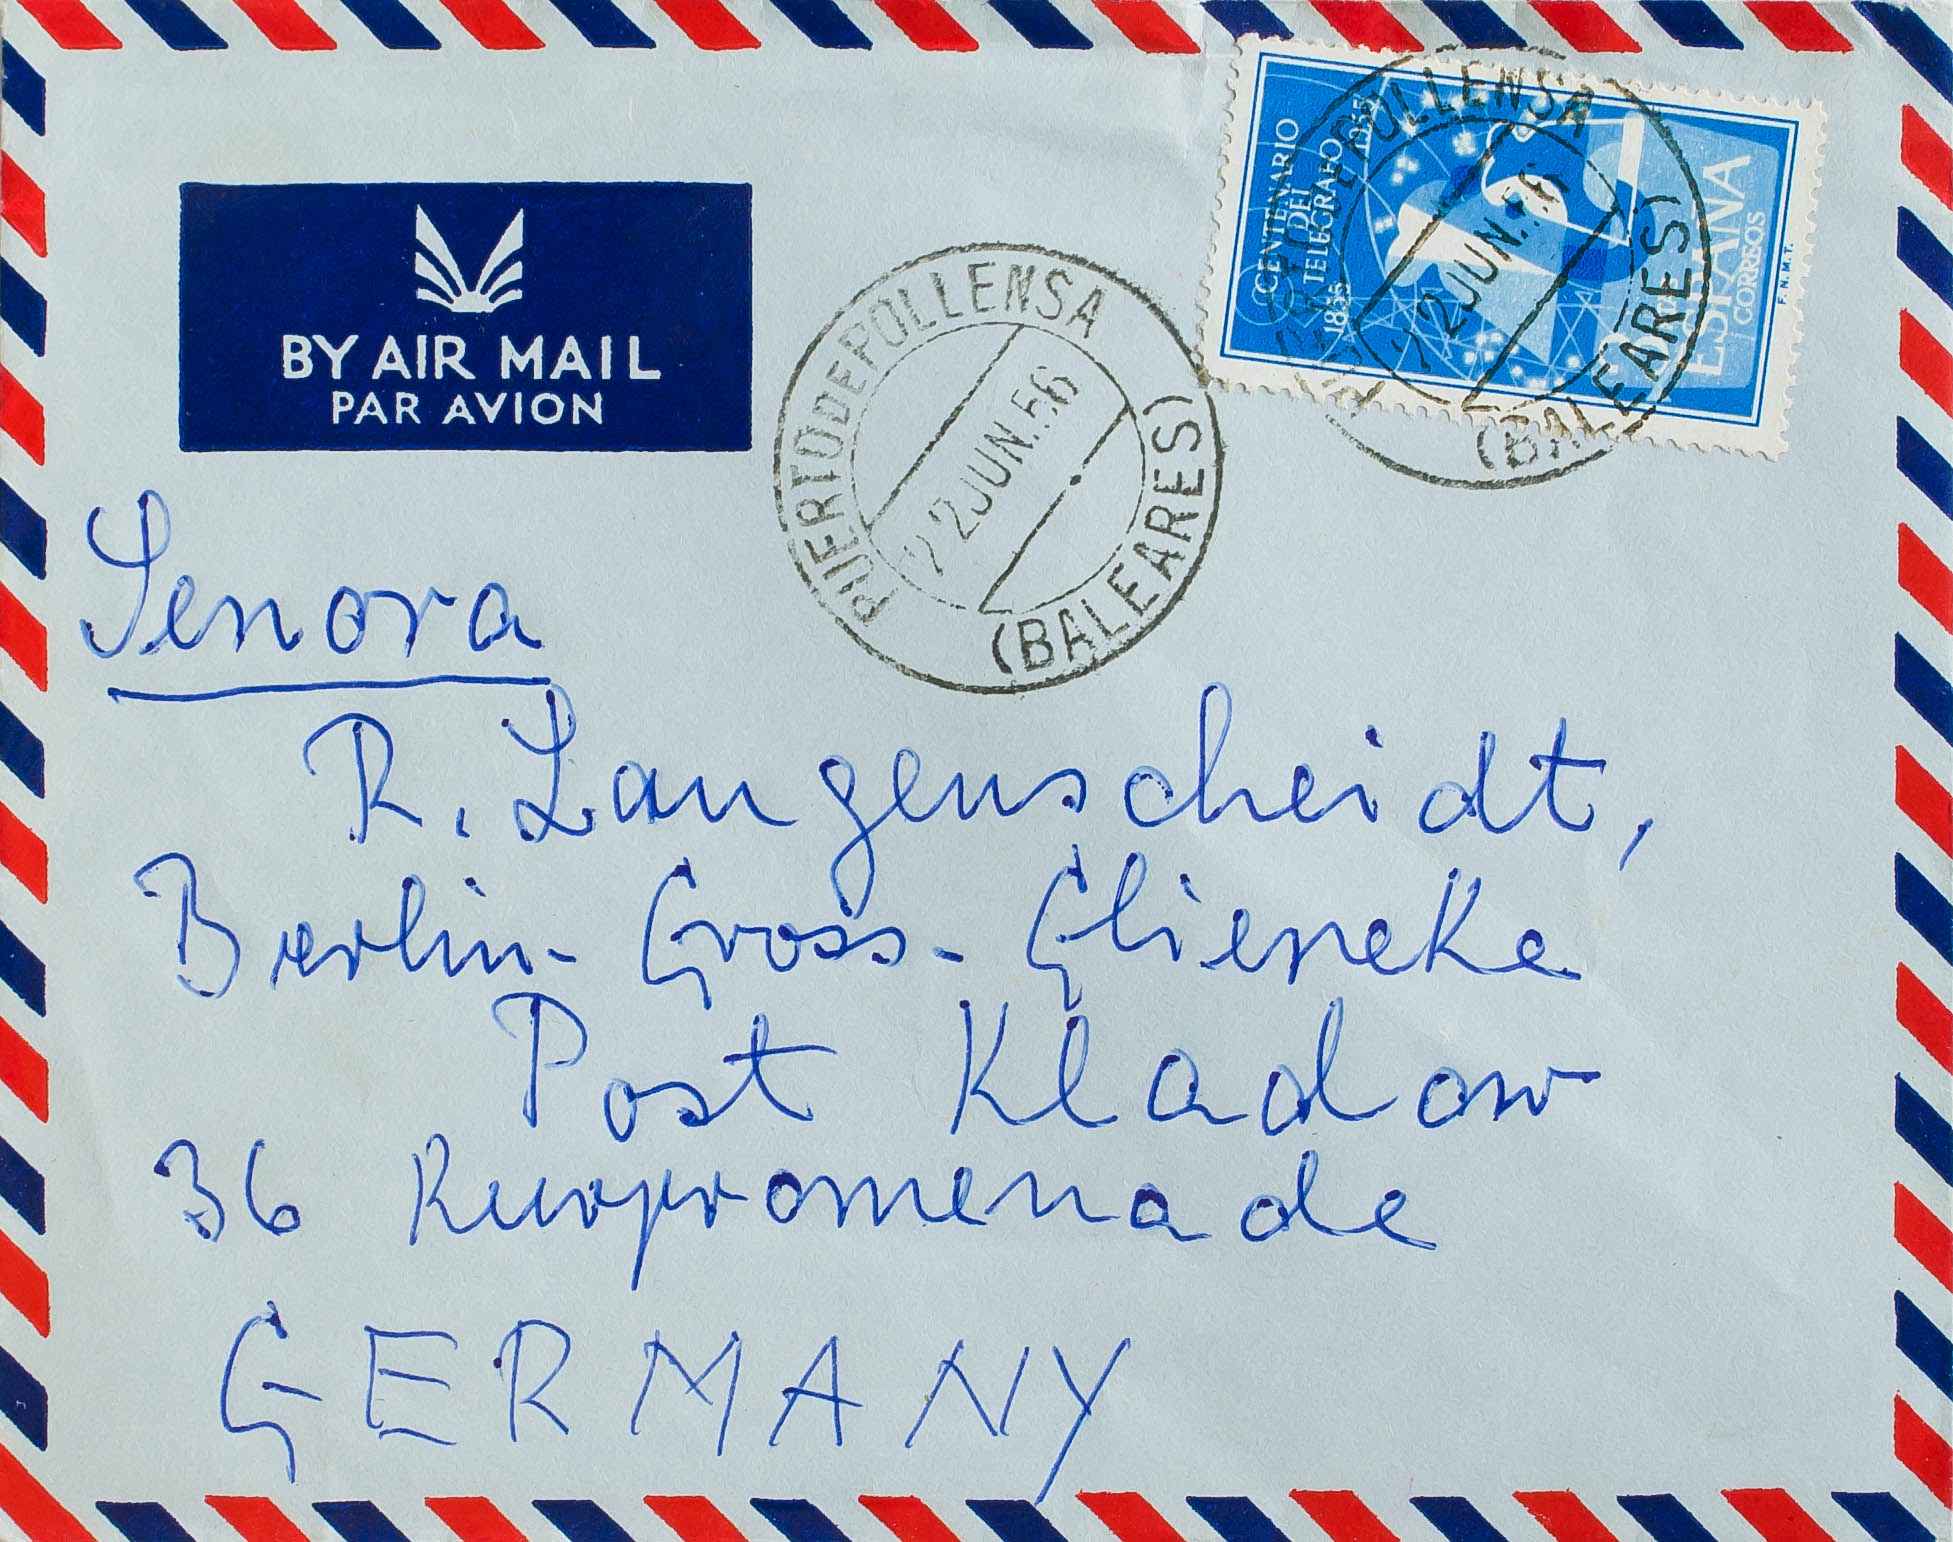 BY AIR MAIL
PAR AVION
PUERTO DE POLLENSA
22 JUN. 56
(BALEARES)
CENTENARIO
DEL
TELEGRAFO
1855 1955
ESPAÑA
CORREOS
F.N.M.T.
POLLENSA
22 JUN. 56
(BALEARES)
Senora
R. Langenscheidt,
Berlin-Gross-Glieneke
Post Kladow
36 Kurpromenade
GERMANY